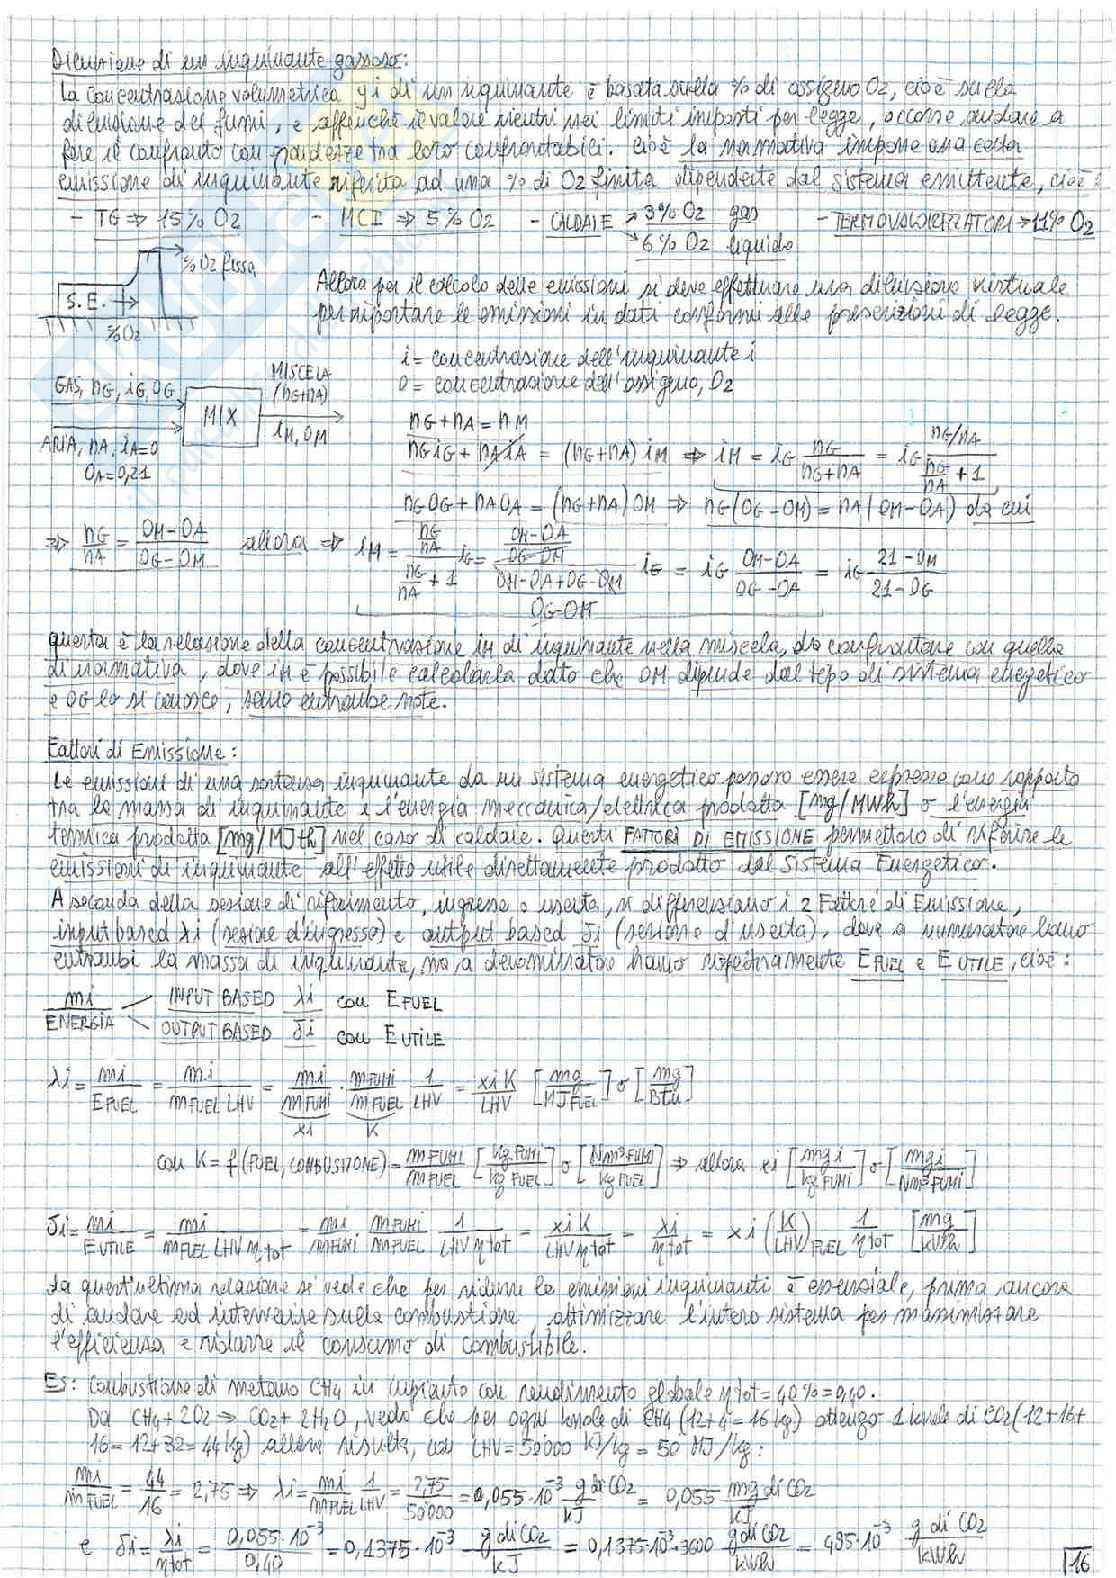 Diluizione di un inquinante gassoso:
La concentrazione volumetrica yi di un inquinante è basata sulla % di ossigeno O2, cioè sulla
diluizione dei fumi, e affinché il valore rientri nei limiti imposti per legge, occorre andare a
fare il confronto con grandezze tra loro confrontabili. Cioè la normativa impone una certa
emissione di inquinante riferita ad una % di O2 finita dipendente dal sistema emittente, cioè:
- TG ⇒ 15% O2 - MCI ⇒ 5% O2 - CALDAIE → 3% O2 gas - TERMOVALORIZZATORI → 11% O2
→ 6% O2 liquido
% O2 fissa
S.E.
%O2
Allora per il calcolo delle emissioni si deve effettuare una diluizione virtuale
per riportare le emissioni in dati conformi alle prescrizioni di legge.
i = concentrazione dell'inquinante i
O = concentrazione dell'ossigeno, O2
GAS, nG, iG, OG
MIX
MISCELA
(nG+nA)
iM, OM
ARIA, nA, iA=0
OA=0,21
nG + nA = nM
nG iG + nA iA = (nG+nA) iM ⇒ iM = iG nG/(nG+nA) = iG (nG/nA)/(nG/nA + 1)
nG OG + nA OA = (nG+nA) OM ⇒ nG(OG - OM) = nA(OM - OA) da cui
⇒ nG/nA = (OM-OA)/(OG-OM) allora ⇒ iM = (nG/nA)/(nG/nA + 1) iG = ((OM-OA)/(OG-OM))/((OM-OA+OG-OM)/(OG-OM)) iG = iG (OM-OA)/(OG-OA) = iG (21-OM)/(21-OG)
questa è la relazione della concentrazione iM di inquinante nella miscela, da confrontare con quella
di normativa, dove iM è possibile calcolarla dato che OM dipende dal tipo di sistema energetico
e OG lo si conosce, sono entrambe note.
Fattori di Emissione:
Le emissioni di una sostanza inquinante da un sistema energetico possono essere espresse come rapporto
tra la massa di inquinante e l'energia meccanica/elettrica prodotta [mg/MWh] o l'energia
termica prodotta [mg/MJth] nel caso di caldaie. Questi FATTORI DI EMISSIONE permettono di riferire le
emissioni di inquinante all'effetto utile direttamente prodotto dal Sistema Energetico.
A seconda della sezione di riferimento, ingresso o uscita, si differenziano i 2 Fattori di Emissione,
input based λi (sezione d'ingresso) e output based δi (sezione d'uscita), dove a numeratore hanno
entrambi la massa di inquinante, ma a denominatore hanno rispettivamente EFUEL e EUTILE, cioè:
mi/ENERGIA INPUT BASED λi con EFUEL
OUTPUT BASED δi con EUTILE
λi = mi/EFUEL = mi/(mFUEL LHV) = mi/mFUMI · mFUMI/mFUEL · 1/LHV = xi K/LHV [mg/MJFUEL] o [mg/Btu]
xi K
con K = f(FUEL, COMBUSTIONE) = mFUMI/mFUEL [kgFUMI/kgFUEL] o [Nm3FUMI/kgFUEL] ⇒ allora xi [mgi/kgFUMI] o [mgi/Nm3FUMI]
δi = mi/EUTILE = mi/(mFUEL LHV ηtot) = mi/mFUMI · mFUMI/mFUEL · 1/(LHV ηtot) = xi K/(LHV ηtot) = λi/ηtot = xi (K/LHV)FUEL 1/ηtot [mg/kWh]
Da quest'ultima relazione si vede che per ridurre le emissioni inquinanti è essenziale, prima ancora
di andare ad intervenire sulla combustione, ottimizzare l'intero sistema per massimizzare
l'efficienza e ridurre il consumo di combustibile.
Es: Combustione di metano CH4 in impianto con rendimento globale ηtot = 40% = 0,40.
Da CH4 + 2O2 ⇒ CO2 + 2H2O, vedo che per ogni kmole di CH4 (12+4 = 16 kg) ottengo 1 kmole di CO2 (12+16+
16 = 12+32 = 44 kg) allora risulta, con LHV = 50'000 kJ/kg = 50 MJ/kg:
mi/mFUEL = 44/16 = 2,75 ⇒ λi = mi/mFUEL 1/LHV = 2,75/50'000 = 0,055·10⁻³ g di CO2/kJ = 0,055 mg di CO2/kJ
e δi = λi/ηtot = 0,055·10⁻³/0,40 = 0,1375·10⁻³ g di CO2/kJ = 0,1375·10⁻³·3600 g di CO2/kWh = 495·10⁻³ g di CO2/kWh
16